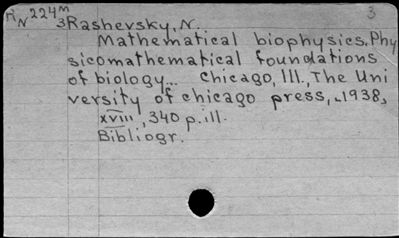 N 224м 3
3 Rashevsky, N.
Mathematical biophysics. Phy
sicomathematical foundations
of biology... Chicago, Ill., The Uni
versity of chicago press, 1938,
xviii, 340 p. ill.
Bibliogr.